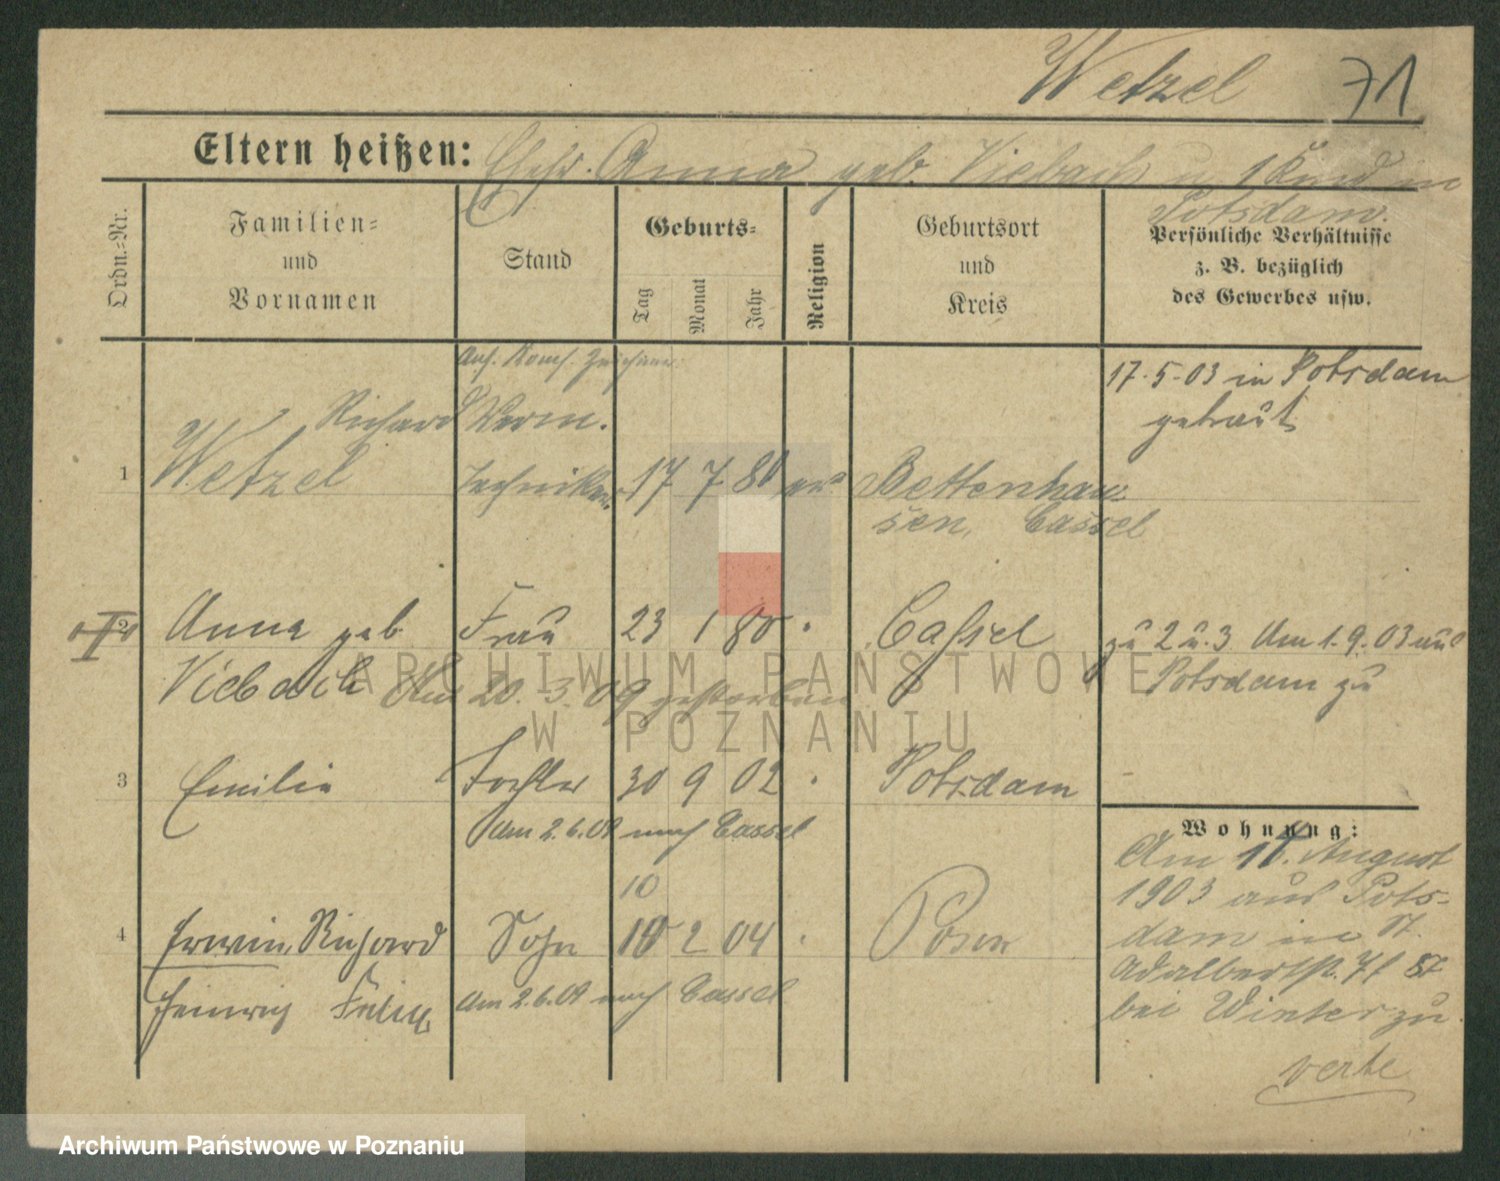 Wetzel 71
Eltern heißen: Ehefr. Anna geb. Viebach u. 1 Kind in
Potsdam.
Ordn.=Nr.
Familien=
und
Vornamen
Stand
Geburts=
Tag
Monat
Jahr
Religion
Geburtsort
und
Kreis
Persönliche Verhältnisse
z. B. bezüglich
des Gewerbes usw.
17.5.03 in Potsdam
getraut
Richard Verm.
1 Wetzel Techniker 17 7 80 Bettenhau-
sen, Cassel
2 Anna geb. Frau 23 1 80 Cassel zu 2 u. 3 Am 1.9.03 aus
Viebach Am 20.3.09 gestorben Potsdam zu
3 Emilie Tochter 30 9 02 Potsdam
Am 2.6.09 nach Cassel
Wohnung:
Am August
1903 aus Pots-
10
4 Erwin Richard Sohn 10 2 04 Posen
dam in St.
Adalbertstr.
Heinrich Felix Am 2.6.09 nach Cassel
bei Winter zu
verte
ARCHIWUM PAŃSTWOWE
W POZNANIU
Archiwum Państwowe w Poznaniu